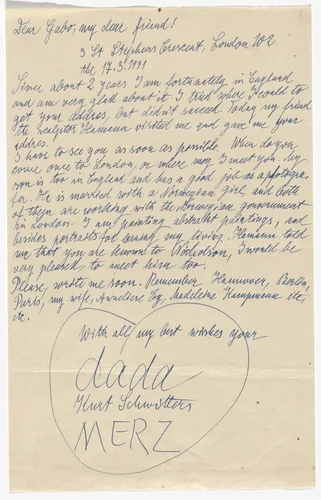 Dear Gabo, my dear friend!
3 St. Stephens Crescent, London W2
the 17.3.1941
Since about 2 years I am fortunately in England
and am very glad about it. I tried where I could to
get your address, but didn't succeed. Today my friend
the sculptor visited me and gave me your
addres.
I have to see you as soon as possible. When do you
come once to London, or where may I meet you. My
son is too in England and has a good job as a photogra-
fer. He is married with a Norwegian girl, and both
of them are working with the Norwegian government
in London. I am painting abstract paintings, and
besides portraits for earning my living. told
me that you are known to Nicholson, I would be
very pleased to meet him too.
Please, write me soon. Remember Hannover, Berlin,
Paris, my wife, Anneliese Madeleine etc,
etc.
With all my best wishes your
dada
Kurt Schwitters
MERZ